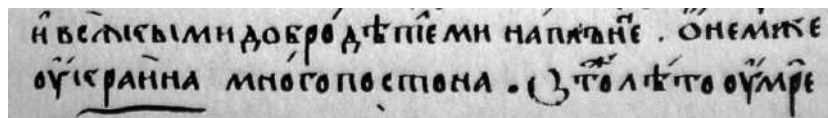 и҆ всѧкыми добродѣтеⷧми наплънеⷩ . ѻ҆ немже
оу҆краина мно́го постона . В тоⷤ лѣто оу҆мре